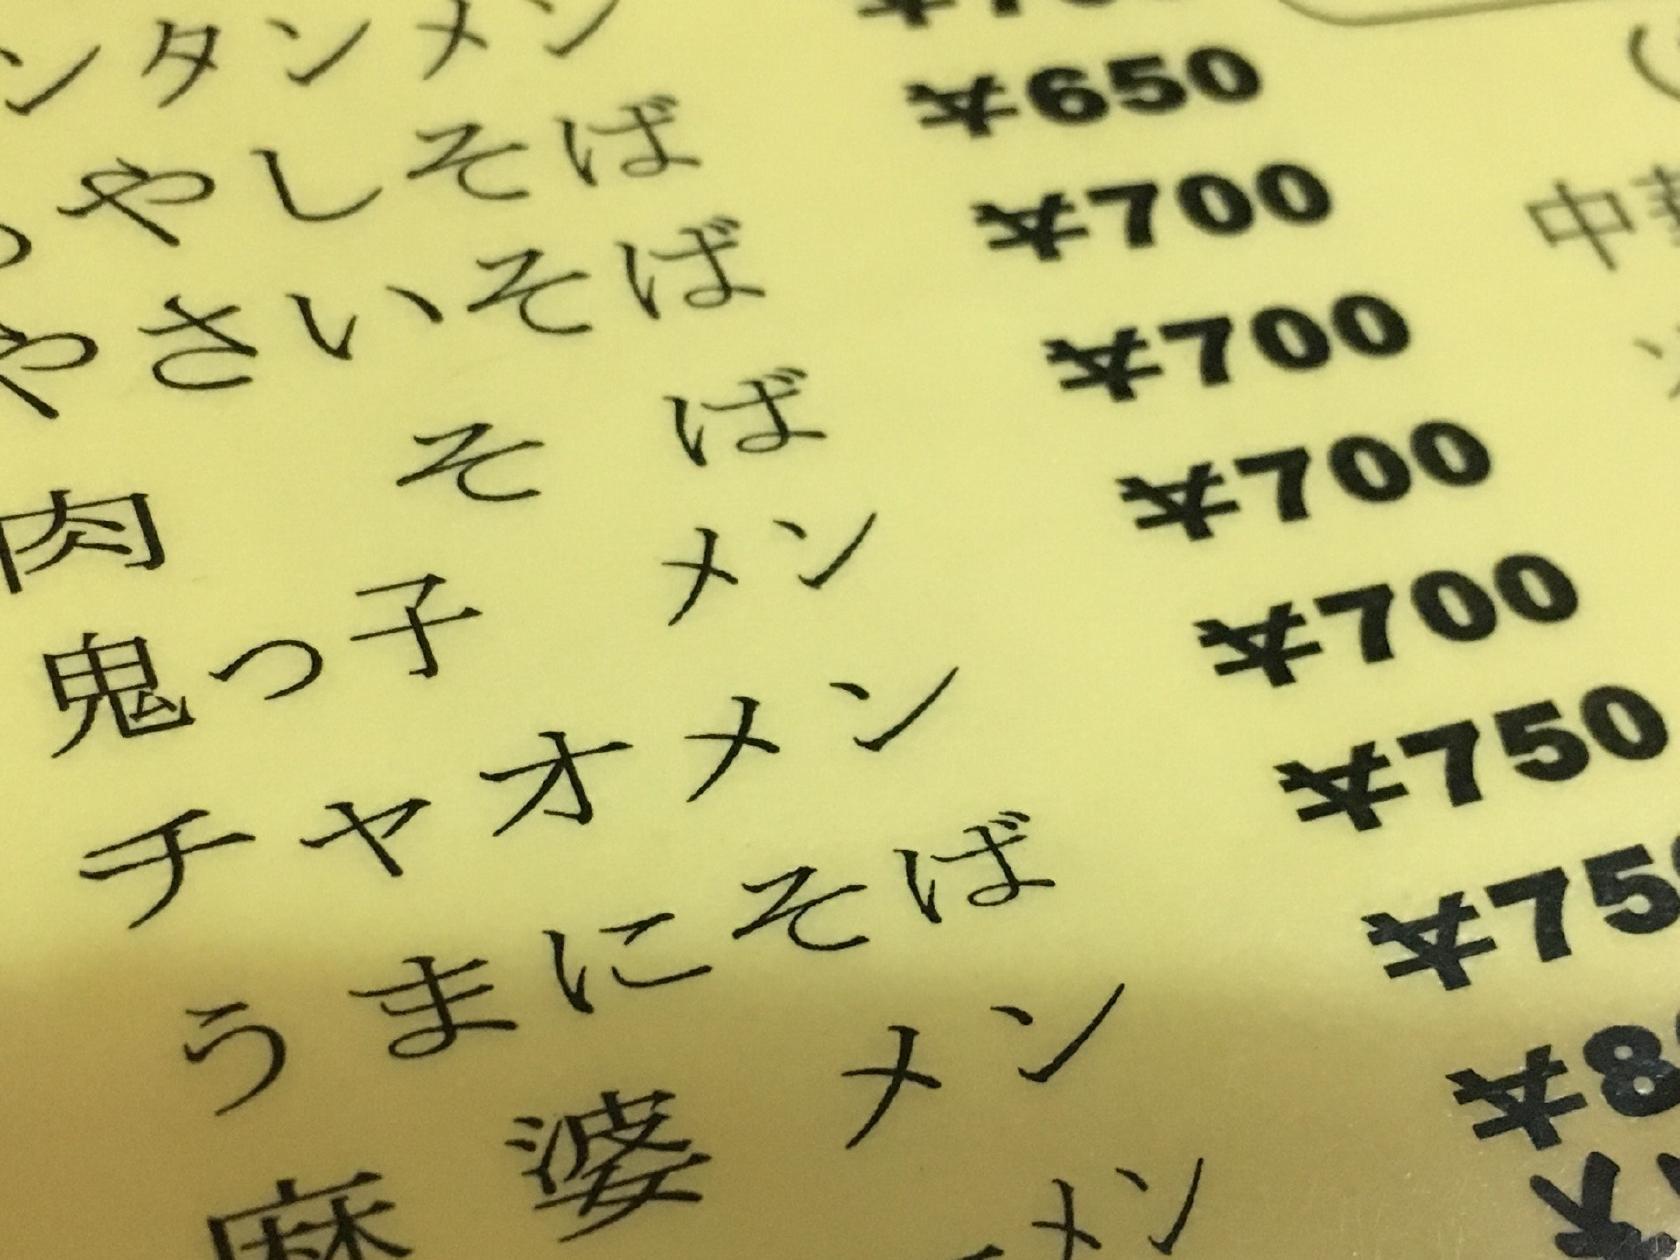 ンタンメン
やしそば ¥650
やさいそば ¥700
肉 そば ¥700 中
鬼っ子 メン ¥700
チャオメン ¥700
うまにそば ¥750
麻婆メン ¥75
ーメン ¥8